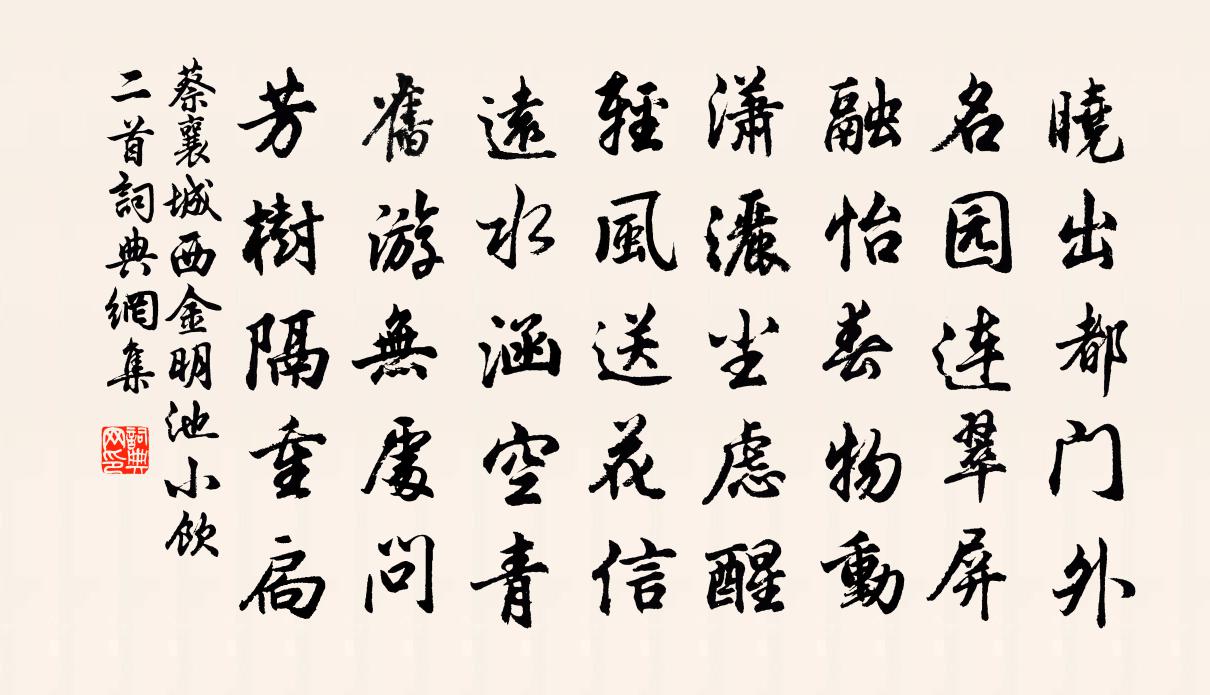 曉出都门外
名园连翠屏
融怡春物動
潇灑尘虑醒
輕風送花信
遠水涵空青
舊游無處問
芳樹隔重扃
蔡襄城西金明池小飲
二首詞典網集
詞典
网印